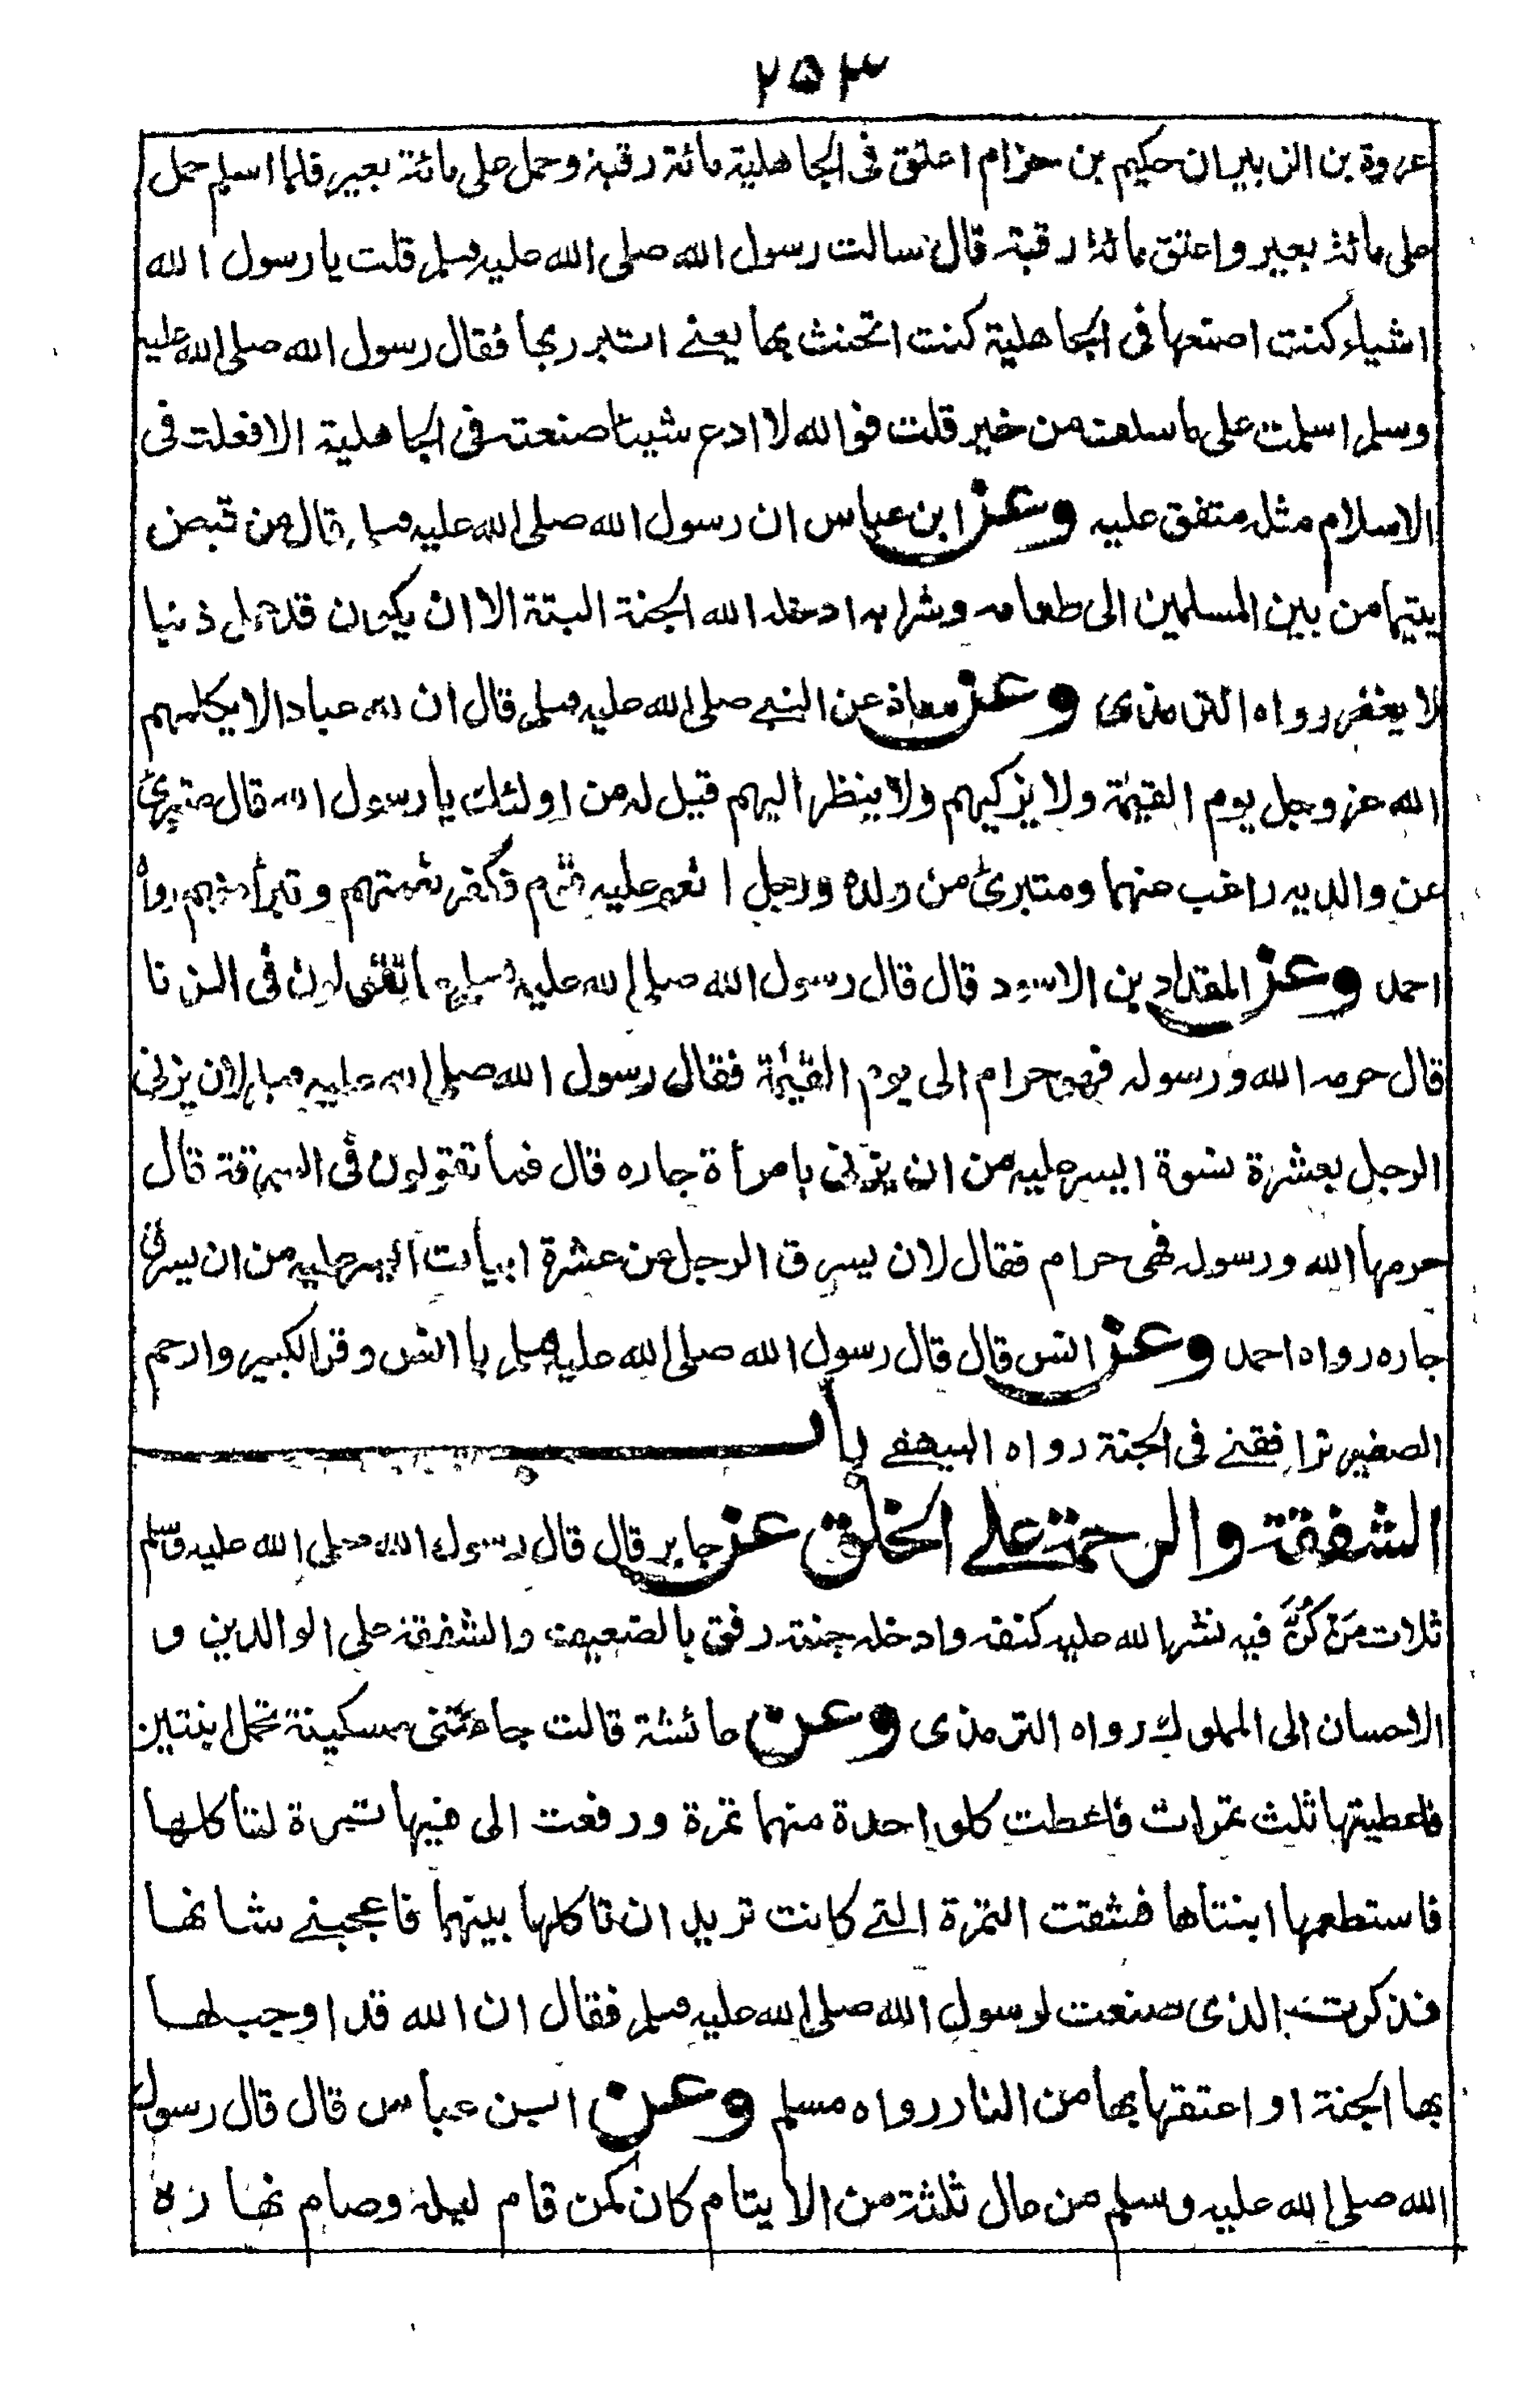 ٢٥٣
عروة بن الزبير ان حكيم بن حزام اعتق فى الجاهلية مائة رقبة وحمل على مائة بعير فلما اسلم حمل
على مائة بعير واعتق مائة رقبة قال سالت رسول الله صلى الله عليه وسلم قلت يا رسول الله
اشياء كنت اصنعها فى الجاهلية كنت اتحنث بها يعنے اتبرر بها فقال رسول الله صلى الله عليه
وسلم اسلمت على ما سلف من خير قلت فوالله لا ادع شيئا صنعته فى الجاهلية الا فعلت فى
الاسلام مثله متفق عليه وعن ابن عباس ان رسول الله صلى الله عليه وسلم قال من قبض
يتيما من بين المسلمين الى طعامه وشرابه ادخله الله الجنة البتة الا ان يكون قد عمل ذنبا
لا يغفر رواه الترمذى وعن معاذ عن النبے صلى الله عليه وسلم قال ان لله عبادا لا يكلمهم
الله عز وجل يوم القيمة ولا يزكيهم ولا ينظر اليهم قيل له من اولئك يا رسول الله قال متبرئ
عن والديه راغب عنهما ومتبرئ من ولده ورجل انعم عليه قوم فكفر نعمتهم وتبرأ منهم رواه
احمد وعن المقداد بن الاسود قال قال رسول الله صلى الله عليه وسلم ما تقولون فى الزنا
قال حرمه الله ورسوله فهو حرام الى يوم القيمة فقال رسول الله صلى الله عليه وسلم لان يزنى
الرجل بعشرة نسوة ايسر عليه من ان يزنى بامرأة جاره قال فما تقولون فى السرقة قال
حرمها الله ورسوله فهى حرام فقال لان يسرق الرجل من عشرة ابيات ايسر عليه من ان يسرق
جاره رواه احمد وعن انس قال قال رسول الله صلى الله عليه وسلم يا انس وقر الكبير وارحم
الصغير ترافقنے فى الجنة رواه البيهقے باب
الشفقة والرحمة علے الخلق عن جابر قال قال رسول الله صلى الله عليه وسلم
ثلاث مَن كُنَّ فيه نشر الله عليه كنفه وادخله جنته رفق بالضعيف والشفقة على الوالدين و
الاحسان الى المملوك رواه الترمذى وعن عائشة قالت جاءتنى مسكينة تحمل ابنتين
فاعطيتها ثلث تمرات فاعطت كل واحدة منهما تمرة ورفعت الى فيها تمرة لتاكلها
فاستطعمها ابنتاها فشقت التمرة التے كانت تريد ان تاكلها بينهما فاعجبنے شانها
فذكرت الذى صنعت لرسول الله صلى الله عليه وسلم فقال ان الله قد اوجب لها
بها الجنة او اعتقها بها من النار رواه مسلم وعن ابن عباس قال قال رسول
الله صلى الله عليه وسلم من عال ثلثة من الايتام كان كمن قام ليله وصام نهاره